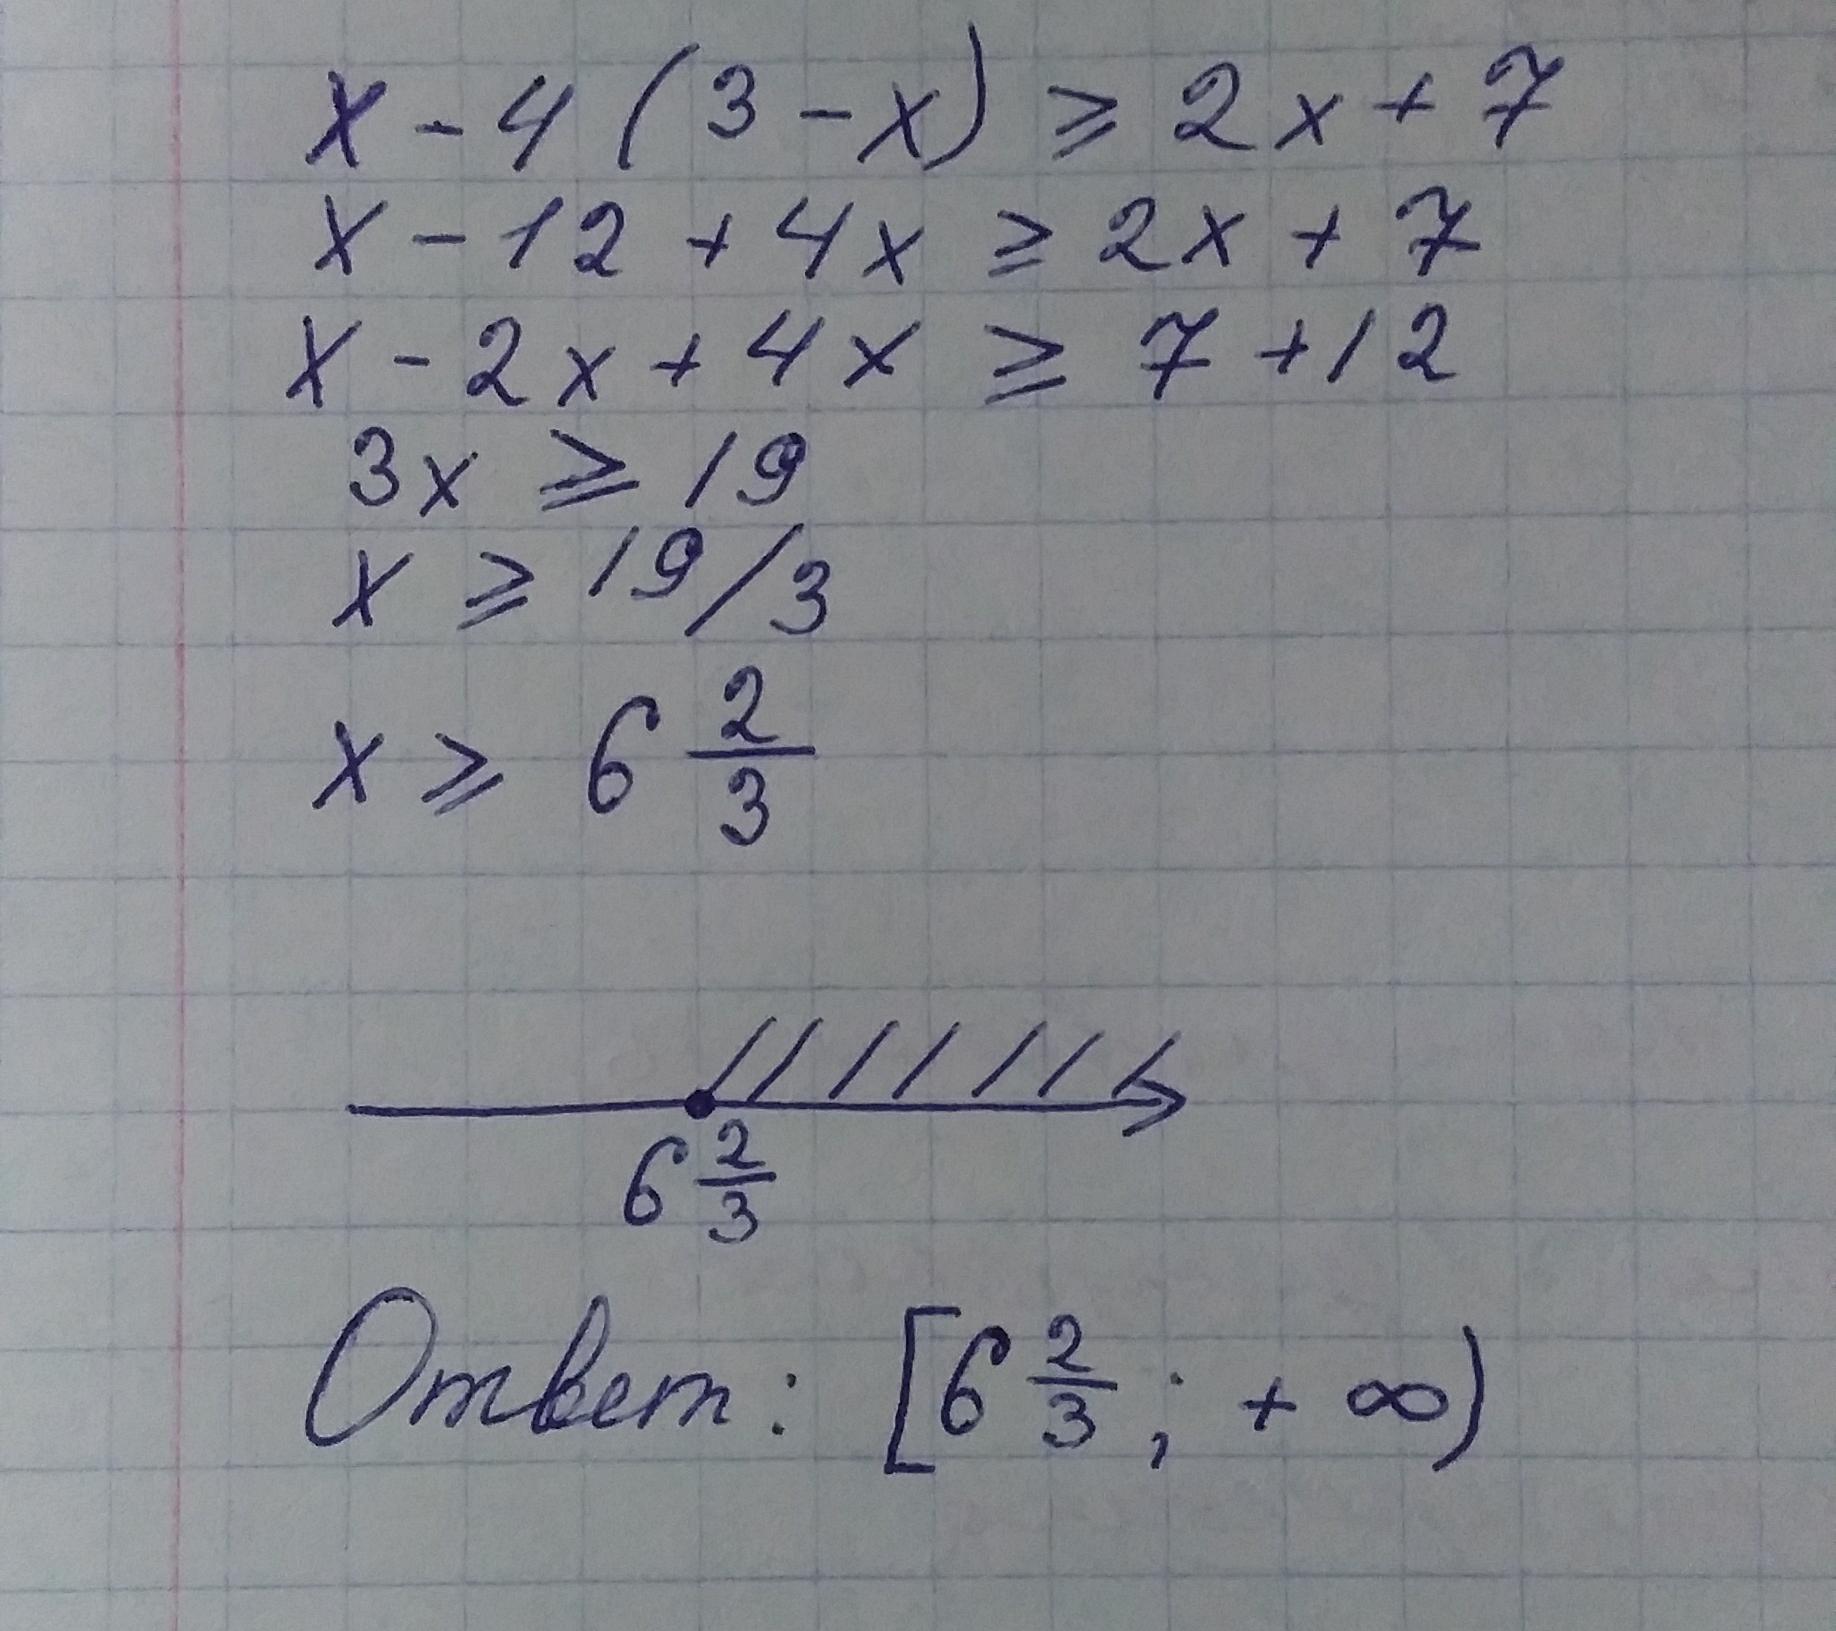 x - 4 (3 - x) ≥ 2x + 7
x - 12 + 4x ≥ 2x + 7
x - 2x + 4x ≥ 7 + 12
3x ≥ 19
x ≥ 19/3
x ≥ 6 2/3
6 2/3
Ответ: [6 2/3; + ∞)